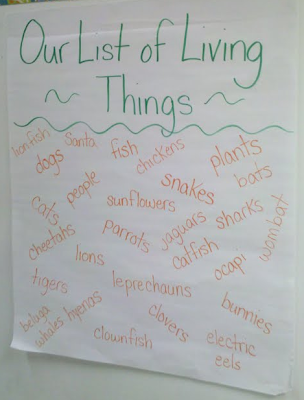 Our List of Living
~ Things ~
lionfish Santa fish chickens plants
dogs bats
people snakes
cats sunflowers sharks wombat
cheetahs parrots jaguars
lions catfish ocapi
tigers leprechauns bunnies
beluga whales hyenas clovers
clownfish electric
eels